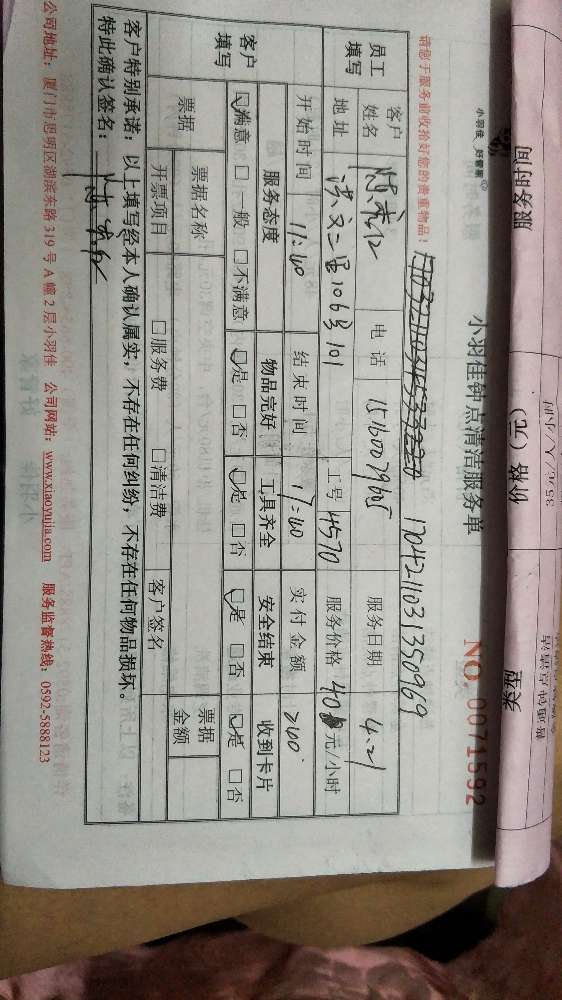 服务时间 价格（元） 类型
35元/人/小时
小羽佳 好管家
小羽佳钟点清洁服务单
NO. 0071592
请您于服务前收拾好您的贵重物品！
1704211031350969
员工填写 客户姓名 电话 15160079605 服务日期 4.21
地址 洪文二里106号101 工号 4570 服务价格 40元/小时
开始时间 11:40 结束时间 17:40 实付金额 240
客户填写 服务态度 物品完好 工具齐全 安全结束 收到卡片
☑满意 □一般 □不满意 ☑是 □否 ☑是 □否 ☑是 □否 ☑是 □否
票据 票据名称 票据金额
开票项目 □服务费 □清洁费 客户签名
客户特别承诺：以上填写经本人确认属实，不存在任何纠纷，不存在任何物品损坏。
特此确认签名：
公司地址：厦门市思明区湖滨东路 319 号 A 幢 2 层小羽佳 公司网站：www.xiaoyujia.com 服务监督热线：0592-5888123